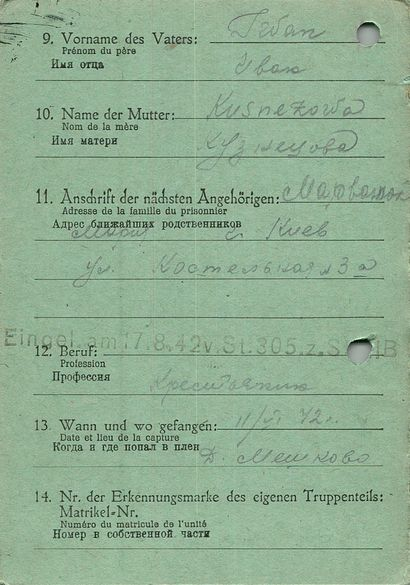 9. Vorname des Vaters: Iван
Prénom du père
Имя отца Иван
10. Name der Mutter: Kusnezowa
Nom de la mère
Имя матери Кузнецова
11. Anschrift der nächsten Angehörigen:
Adresse de la famille du prisonnier
Адрес ближайших родственников
Мария г. Киев
ул. Костельная 3а
Eingel. am 17.8.42 v. St. 305. z. S IVB
12. Beruf:
Profession
Профессия
13. Wann und wo gefangen: 11/VI 42г.
Date et lieu de la capture
Когда и где попал в плен Д. Мешково
14. Nr. der Erkennungsmarke des eigenen Truppenteils:
Matrikel=Nr.
Numéro du matricule de l'unité
Номер в собственной части